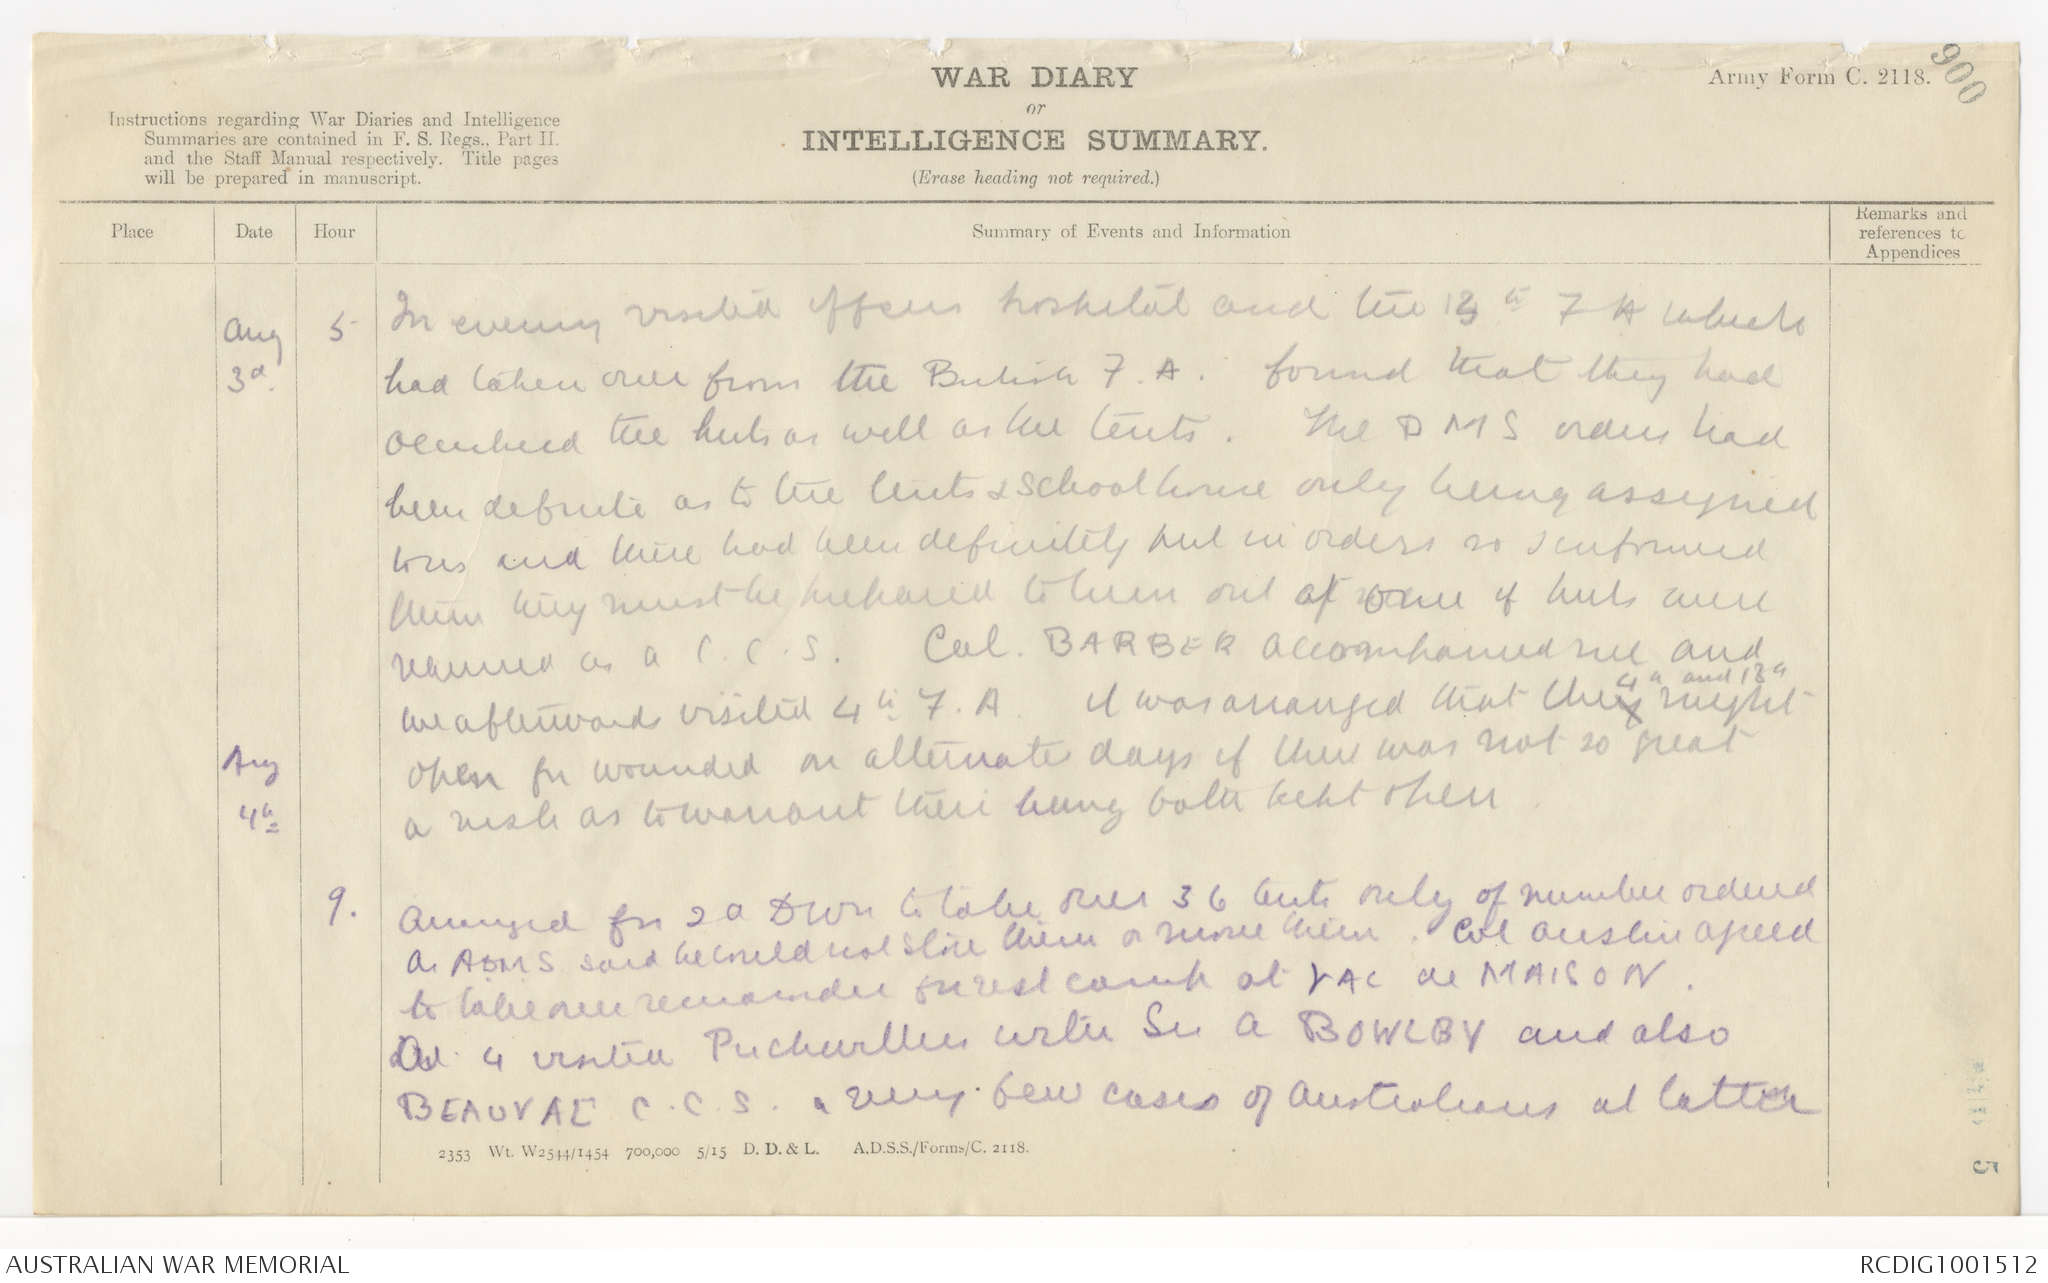 WAR DIARY
or
INTELLIGENCE SUMMARY.
(Erase heading not required.)
Army Form C. 2118.
900
Instructions regarding War Diaries and Intelligence
Summaries are contained in F. S. Regs., Part II.
and the Staff Manual respectively. Title pages
will be prepared in manuscript.
Place
Date
Hour
Summary of Events and Information
Remarks and
references to
Appendices
Aug
3d.
5
In evening visited officers hospital and the 13th F A which
had taken over from the British F. A. found that they had
occupied the huts as well as the tents. The DMS orders had
been definite as to the tents & Schoolhouse only being assigned
to us and there had been definitely put in orders so I informed
them they must be prepared to turn out of some of huts were
required as a C. C. S. Col. BARBER accompanied me and
we afterwards visited 4th F. A It was arranged that they 4th and 13th might
open for wounded on alternate days if there was not so great
a rush as to warrant their being both kept open.
Aug
4th
9.
Arranged for 2d Divn to take over 36 tents only of number ordered
as ADMS said he could not store them or move them. Col Austin agreed
to take over remainder for rest camp at VAC de MAISON.
At 4 visited Puchevillers with Sir A BOWLBY and also
BEAUVAL C. C. S. very few cases of Australians at latter
2353 Wt. W2544/1454 700,000 5/15 D. D. & L. A.D.S.S./Forms/C. 2118.
5
AUSTRALIAN WAR MEMORIAL
RCDIG1001512